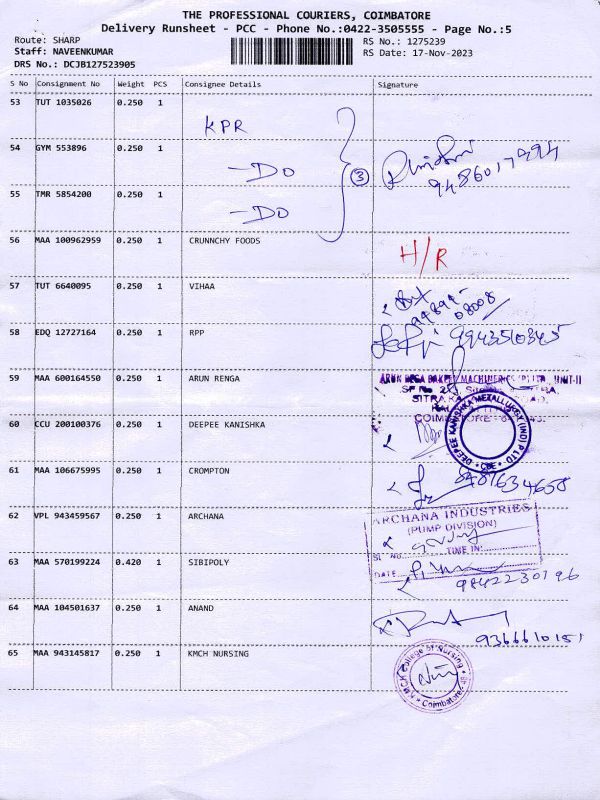 THE PROFESSIONAL COURIERS, COIMBATORE
Delivery Runsheet - PCC - Phone No.:0422-3505555 - Page No.:5
Route: SHARP
Staff: NAVEENKUMAR
DRS No.: DCJB127523905
RS No.: 1275239
RS Date: 17-Nov-2023
S No Consignment No Weight PCS Consignee Details Signature
53 TUT 1035026 0.250 1 KPR
54 GYM 553896 0.250 1 -DO
3
55 TMR 5854200 0.250 1 -DO
56 MAA 100962959 0.250 1 CRUNNCHY FOODS H/R
57 TUT 6640095 0.250 1 VIHAA
58 EDQ 12727164 0.250 1 RPP
59 MAA 600164550 0.250 1 ARUN RENGA
60 CCU 200100376 0.250 1 DEEPEE KANISHKA
DEEPEE KANISHKA METALLUREK (IND) P LTD
CBE
61 MAA 106675995 0.250 1 CROMPTON
62 VPL 943459567 0.250 1 ARCHANA
ARCHANA INDUSTRIES
(PUMP DIVISION)
TIME IN:
DATE
63 MAA 570199224 0.420 1 SIBIPOLY 9842230196
64 MAA 104501637 0.250 1 ANAND
65 MAA 943145817 0.250 1 KMCH NURSING
College of Nursing
Coimbatore